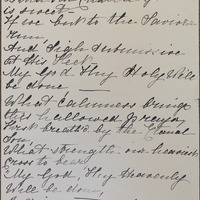 is sweet
If we but to the Saviour
run,
And sigh submissive
at His feet
My God Thy Holy Will
be done
What calmness brings
this hallowed prayer
First breath'd by the Eternal
Son
What strength our heaviest
cross to bear
"My God, Thy Heavenly
Will be done,